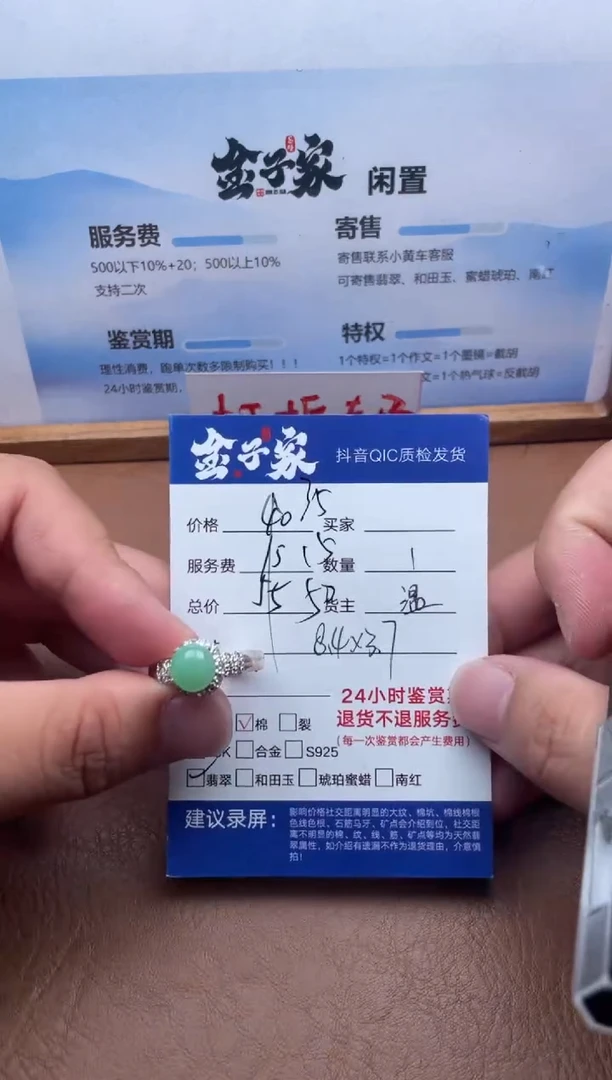 金子家 闲置
服务费
500以下10%+20；500以上10%
支持二次
寄售
寄售联系小黄车客服
可寄售翡翠、和田玉、蜜蜡琥珀、南红
鉴赏期
理性消费，跑单次数多限制购买！！！
24小时鉴赏期，
特权
1个特权=1个作文=1个墨镜=截胡
文=1个热气球=反截胡
金子家 抖音QIC质检发货
价格 40 35 买家
服务费 15 15 数量 1
总价 55 50 货主 温
8.4×3.7
24小时鉴赏期
退货不退服务费
(每一次鉴赏都会产生费用)
棉 裂
K 合金 S925
翡翠 和田玉 琥珀蜜蜡 南红
建议录屏：
影响价格社交距离明显的大纹、棉坑、棉线棉根
色线色根、石筋马牙、矿点会介绍到位、社交距
离不明显的棉、纹、线、筋、矿点等均为天然翡
翠属性，如介绍有遗漏不作为退货理由，介意慎
拍！